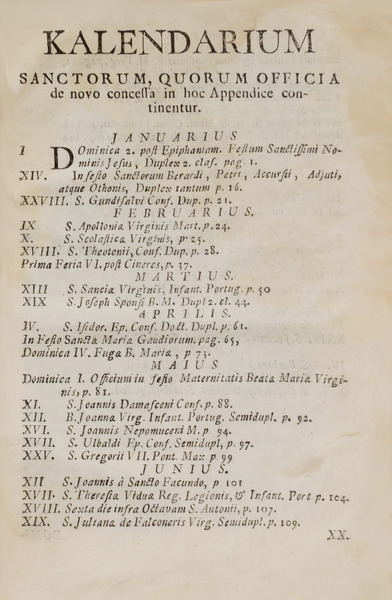 KALENDARIUM
SANCTORUM, QUORUM OFFICIA
de novo concessa in hoc Appendice con-
tinentur.
JANUARIUS
I Dominica 2. post Epiphaniam. Festum Sanctissimi No-
minis Jesus, Duplex 2. clas. pag 1.
XIV. In festo Sanctorum Berardi, Petri, Accursii, Adjuti,
atque Othonis, Duplex tantum p. 16.
XXVIII. S. Gundisalvi Conf. Dup. p. 21.
FEBRUARIUS.
IX S. Apollonia Virginis Mart. p. 24.
X. S. Scolastica Virginis, p. 25.
XVIII. S. Theotonii, Conf. Dup. p. 28.
Prima Feria VI. post Cineres, p. 37.
MARTIUS.
XIII S. Sancia Virginis, Infant. Portug. p. 50
XIX S. Joseph Sponsi B. M. Dupl 2. cl. 44.
APRILIS.
IV. S. Isidor. Ep. Conf. Doct. Dupl. p. 61.
In Festo Sancta Maria Gaudiorum. pag. 65,
Dominica IV. Fuga B. Maria, p 73.
MAIUS
Dominica I. Officium in festo Maternitatis Beata Maria Virgi-
nis, p. 81.
XI. S. Joannis Damasceni Conf. p. 88.
XII. B. Joanna Virg. Infant. Portug. Semidupl. p. 92.
XVI. S. Joannis Nepomuceni M. p 94.
XVII. S. Ulbaldi Ep. Conf. Semidupl, p. 97.
XXV. S. Gregorii VII. Pont. Max p 99
JUNIUS.
XII S. Joannis à Sancto Facundo, p 101
XVII. S. Theresia Vidua Reg. Legionis, & Infant. Port p. 104.
XVIII. Sexta die infra Octavam S. Antonii, p. 107.
XIX. S. Juliana de Falconeris Virg. Semidupl. p. 109.
XX.